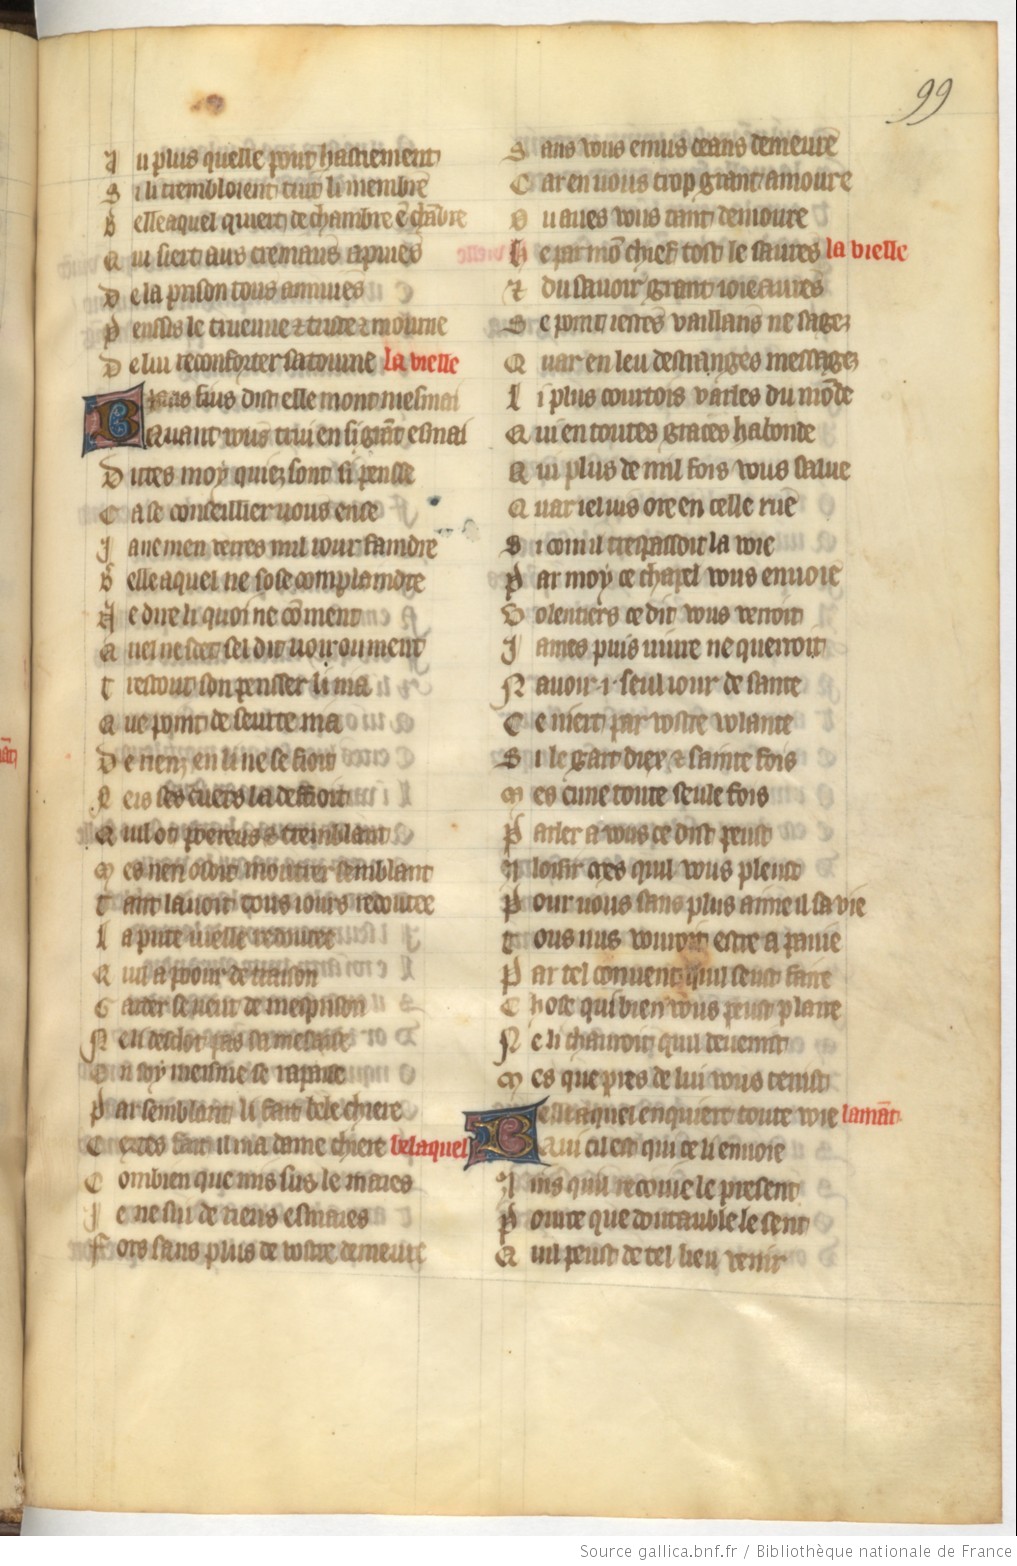 99
Au plus quelle pout hastiement
Si li trembloient tuit li membre
Belleaquel quiert de chambreē chābre
Qui siert aus cremaus apuiee
De la prison tous annuiee
Pensis le trueuue ⁊ triste ⁊ mourne
De lui reconforter satourne la vielle
Biaus fuis dist elle mont mesmai
Quant vous truien si grāt esmai
Dites moy quiez sont si pense
Ca se conseillier vous en se
Ja ne men verres nul iour faindre
Belleaquel ne sose complaindre
Ne dire li quoi ne cōment
Quel ne set sel dit voir ou ment
trestout son pensser li nia
Que point de seurte ni a
De rienz en li ne se fioit
Neis ses cuers la deffioit
Quil ot poereus ⁊ tremblant
Mes nen osoit moustrer semblant
tant lauoit tous iours redoutee
la pute vielle redoutee
Quil a poour de traison
Garder se veut de mesprison
Ne li desclot pas sa mesaise
En soy meisme se rapaise
Par semblant li fait bele chiere
Certes fait il ma dame chiere belaquel
Combien que mis sus le maies
Je ne sui de riens esmaies
Fors sans plus de vostre demeure
Sans vous enuis ceans demeure
Car en vous trop grant amoure
Ou aues vous tant demoure
He par mō chief tost le saures la vielle
⁊ du sauoir grant ioie aures
Se point iestes vaillans ne sagez
Quar en leu destranges messagez
li plus courtois varles du mōde
Qui en toutes graces habonde
Qui plus de mil fois vous salue
Quar ie luis ore en celle rue
Si com il trespassoit la voie
Par moy ce chapel vous enuoie
Volentiers ce dit vous verroit
James puis viure ne querroit
Nauoir .i. seul iour de sante
Ce niert par vostre volante
Si le gart diex ⁊ sainte fois
Mes cune toute seule fois
Parler a vous ce dist peust
A loisir mes quil vous pleust
Pour vous sans plus aime il sa vie
tous nus vouroit estre a pauie
Par tel conuent quil seust faire
Chose qui bien vous peust plaire
Ne li chauroit quil deuenist
Mes que pres de lui vous tenist
Belleaquel enquiert toute voie lamāt
Qui cil est qui ce li enuoie
Ains quil recoiue le present
Pource que doutauble le sent
Quil peust de tel lieu venir
Source gallica.bnf.fr / Bibliothèque nationale de France